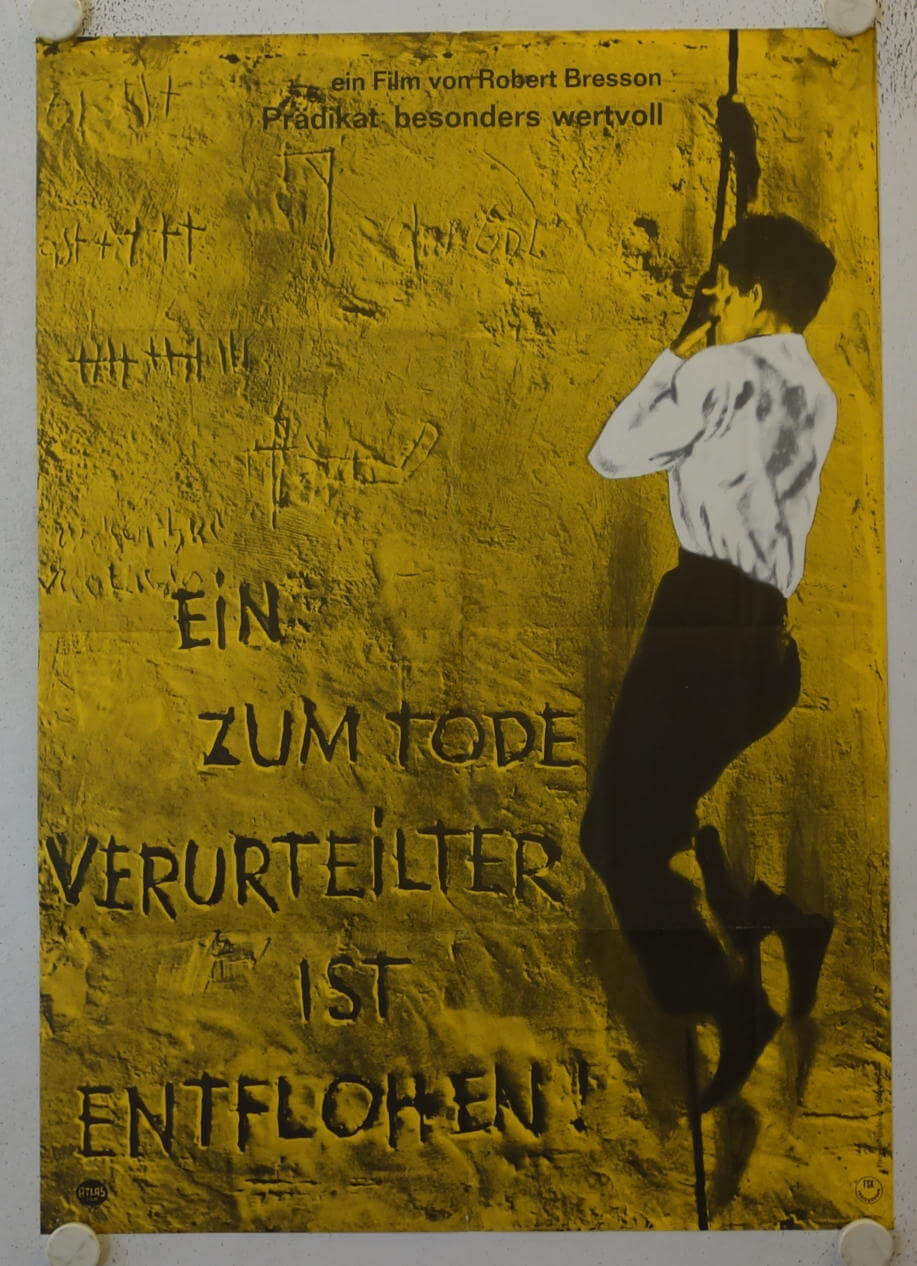 ein Film von Robert Bresson
Prädikat: besonders wertvoll
EiN
ZUM TODE
VERURTEiLTER
IST
ENTFLOHEN!
ATLAS
FSK